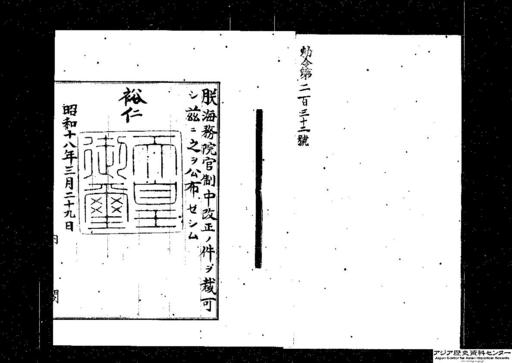 勅令第二百三十二號
朕海務院官制中改正ノ件ヲ裁可
シ茲ニ之ヲ公布セシム
裕仁
天皇
御璽
昭和十八年三月二十九日
内閣
アジア歴史資料センター
Japan Center for Asian Historical Records